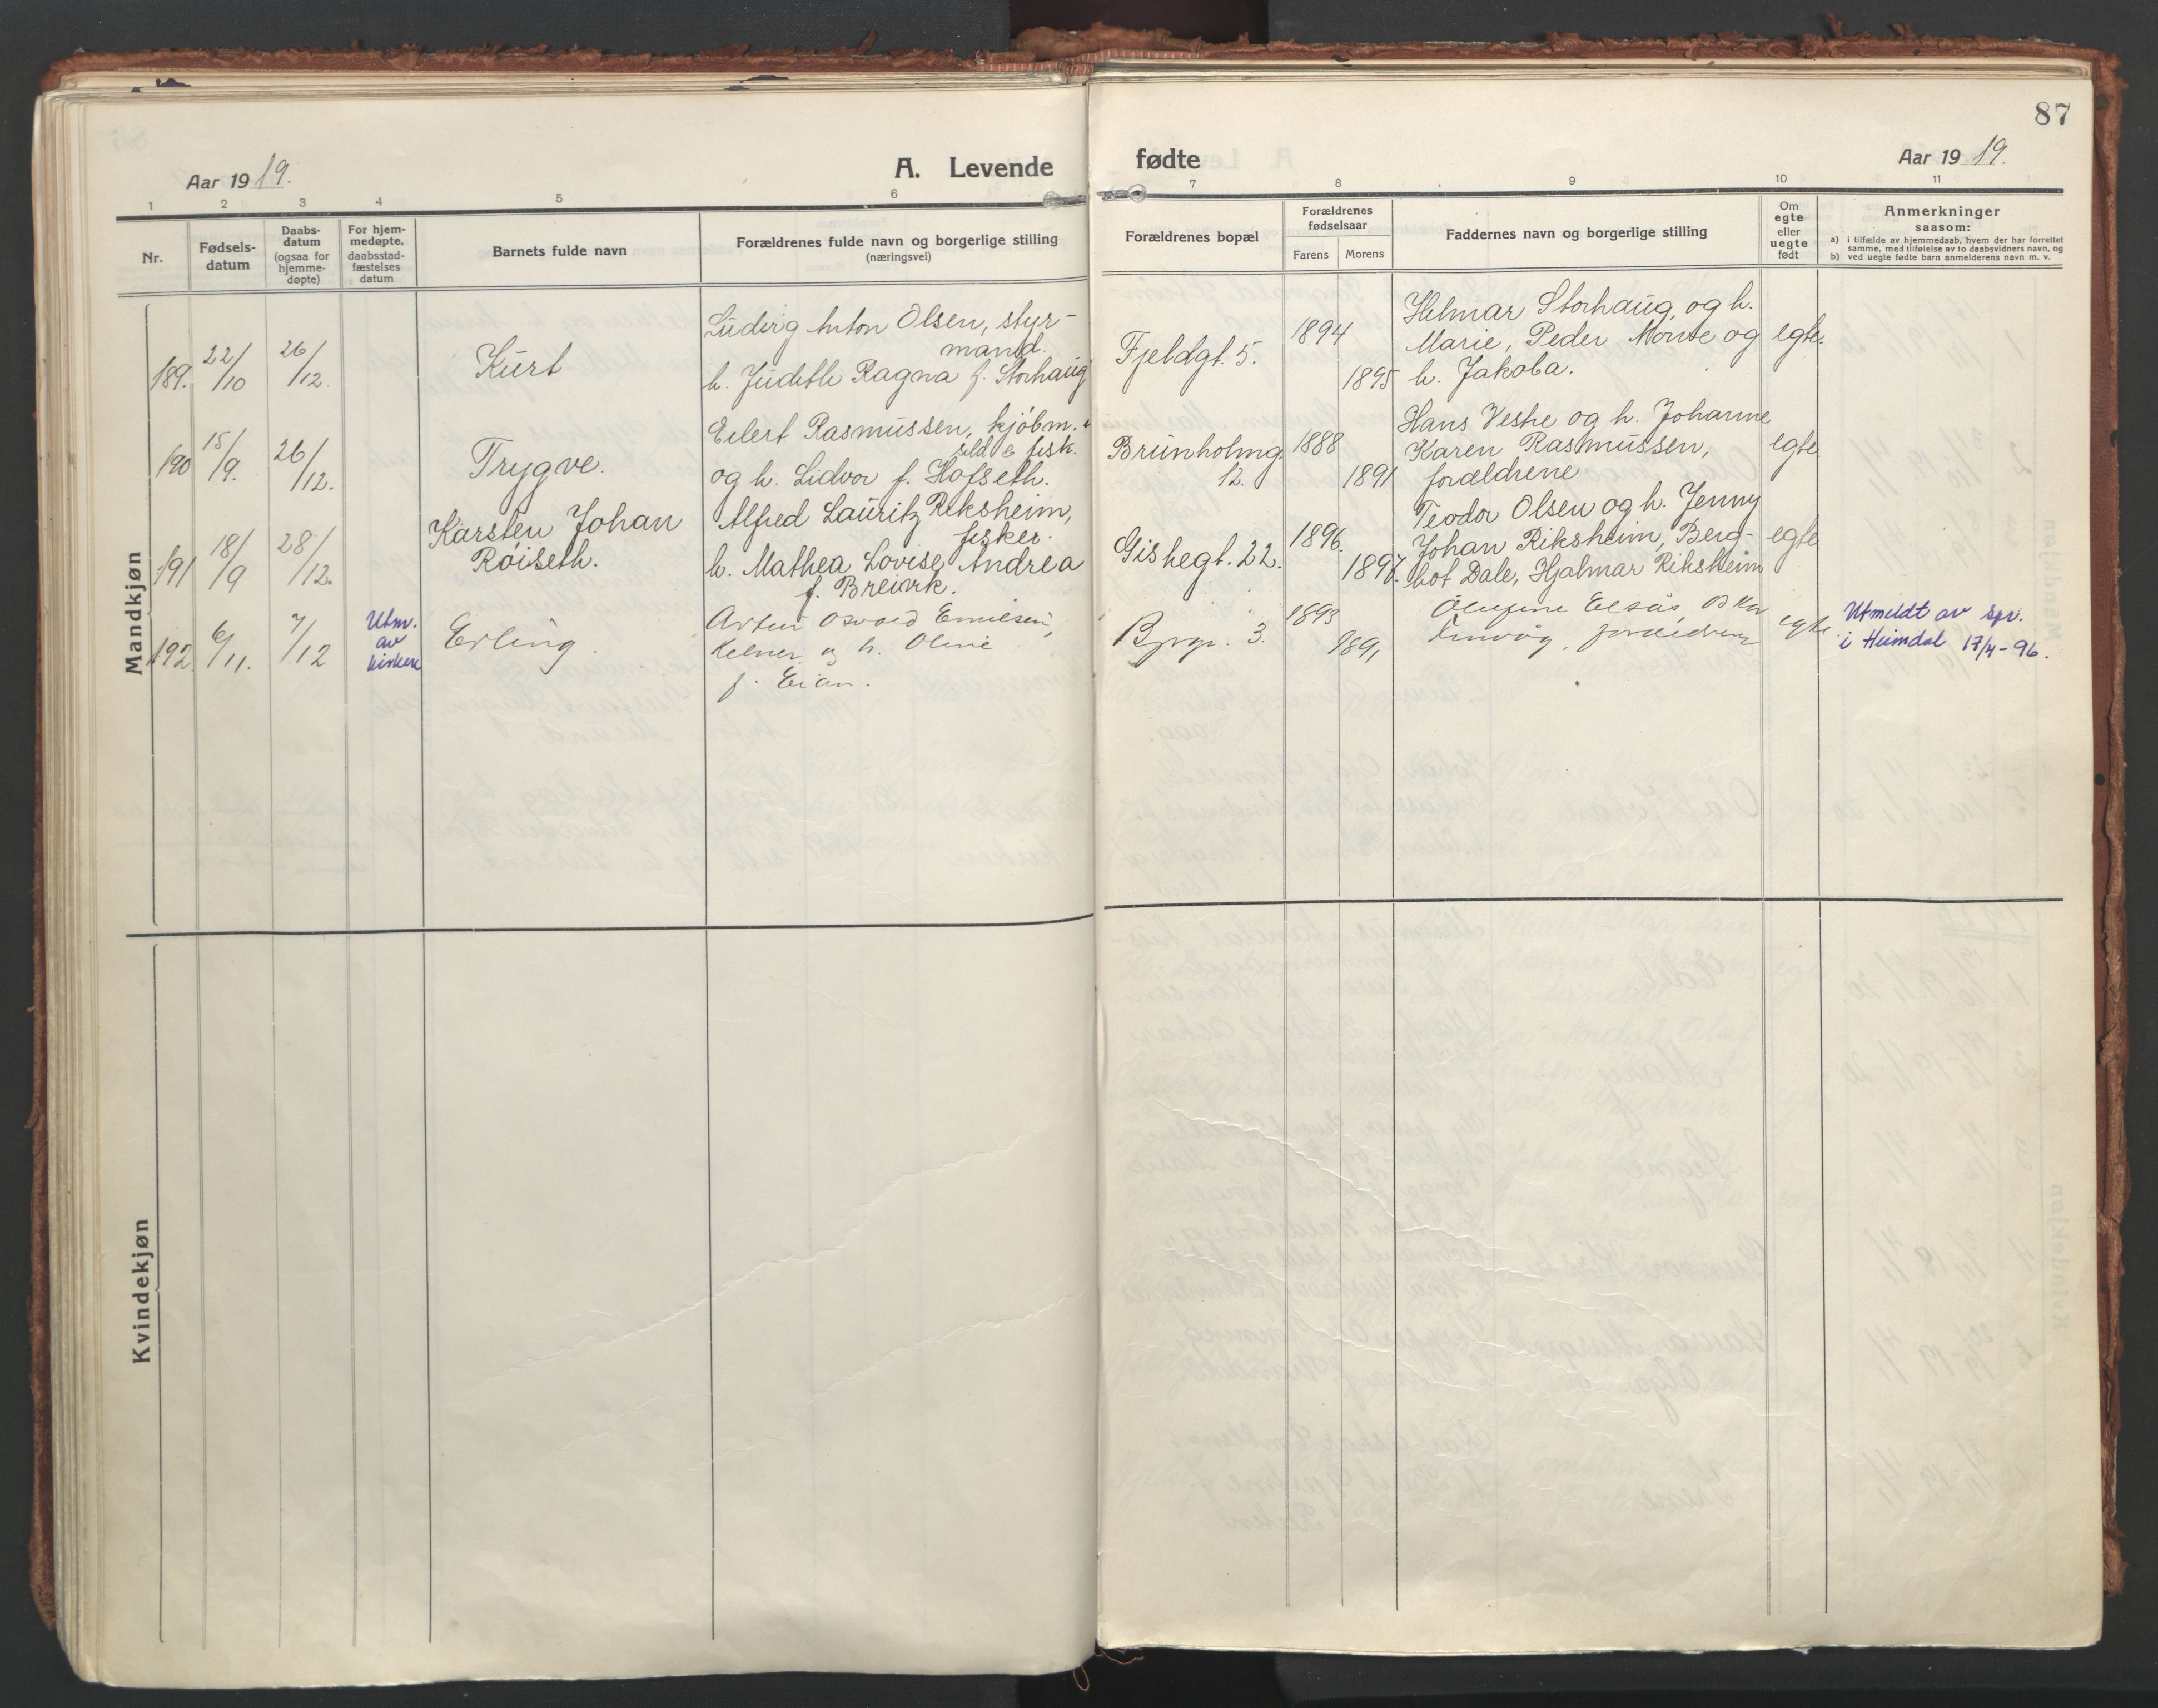 87
Aar 1919.
A. Levende
fødte
Aar 1919.
1 2 3 4 5 6 7 8 9 10 11
Nr.
Fødsels-
datum
Daabs-
datum
(ogsaa for
hjemme-
døpte)
For hjem-
medøpte,
daabsstad-
fæstelses
datum
Barnets fulde navn
Forældrenes fulde navn og borgerlige stilling
(næringsvei)
Forældrenes bopæl
Forældrenes
fødselsaar
Farens Morens
Faddernes navn og borgerlige stilling
Om
egte
eller
uegte
født
Anmerkninger
saasom:
a) i tilfælde av hjemmedaab, hvem der har forrettet
samme, med tilføielse av to daabsvidners navn, og
b) ved uegte fødte barn anmelderens navn m. v.
Mandkjøn
189. 22/10 26/12. Kurt
Ludvig Anton Olsen, styr-
mand.
h. Judith Ragna f. Storhaug
Fjeldgt. 5.
1894
1895
Helmar Storhaug, og h.
Marie, Peder Monse og
h. Jakoba.
egte.
190 15/9. 26/12. Trygve.
Eilert Rasmussen, kjøbm.
sild & fisk.
og h. Lidvor f. Hofseth.
Brunholmg.
12.
1888
1891
Hans Vestre og h. Johanne
Karen Rasmussen,
forældrene
egte
191 18/9 28/12.
Karsten Johan
Røiseth.
Alfred Lauritz Riksheim,
fisker.
h. Mathea Lovise Andrea
f. Breivik.
Giskegt. 22.
1896.
1897.
Teodor Olsen og h. Jenny
Johan Riksheim, Berg-
hot Dale, Hjalmar Riksheim
egte
192. 6/11. 7/12
Utm.
av
kirken
Erling.
Artur Osvald Emilsen,
Kelner og h. Oline
f. Eian.
3.
1893
1891
forældrene
egte.
Utmeldt av spr.
i Heimdal 17/4-96.
Kvindekjøn